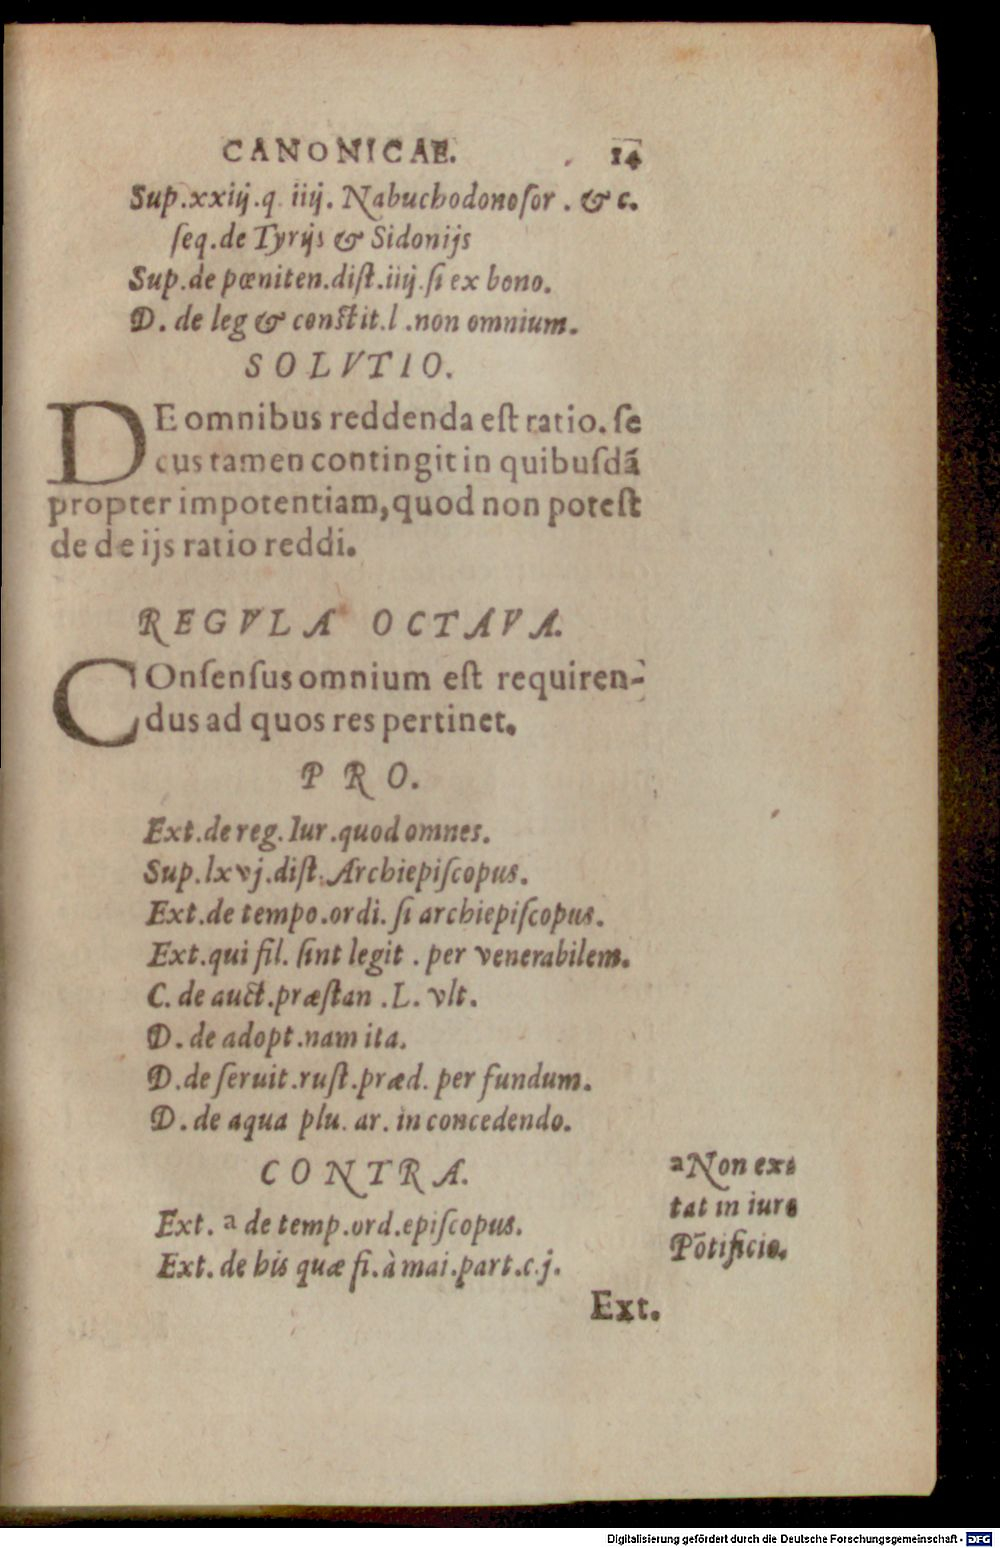 CANONICAE. 14
Sup.xxiij.q. iiij. Nabuchodonoſor . & c.
ſeq.de Tyrijs & Sidonijs
Sup.de pœniten.diſt.iiij.ſi ex bono.
D. de leg & conſtit.l .non omnium.
SOLVTIO.
DE omnibus reddenda eſt ratio. ſe
cus tamen contingit in quibuſdā
propter impotentiam,quod non poteſt
de de ijs ratio reddi.
REGVLA OCTAVA.
COnſenſus omnium eſt requiren-
dus ad quos res pertinet.
PRO.
Ext.de reg. Iur .quod omnes.
Sup.lxvj.diſt. Archiepiſcopus.
Ext.de tempo.ordi. ſi archiepiſcopus.
Ext.qui fil. ſint legit . per venerabilem.
C. de auct.præſtan .L. vlt.
D. de adopt.nam ita.
D.de ſeruit.ruſt.præd. per fundum.
D. de aqua plu. ar. in concedendo.
CONTRA.
Ext. a de temp.ord.epiſcopus.
Ext. de his quæ fi. à mai.part.c.j.
Ext.
a Non exs
tat in iure
Pōtificio.
Digitalisierung gefördert durch die Deutsche Forschungsgemeinschaft - DFG